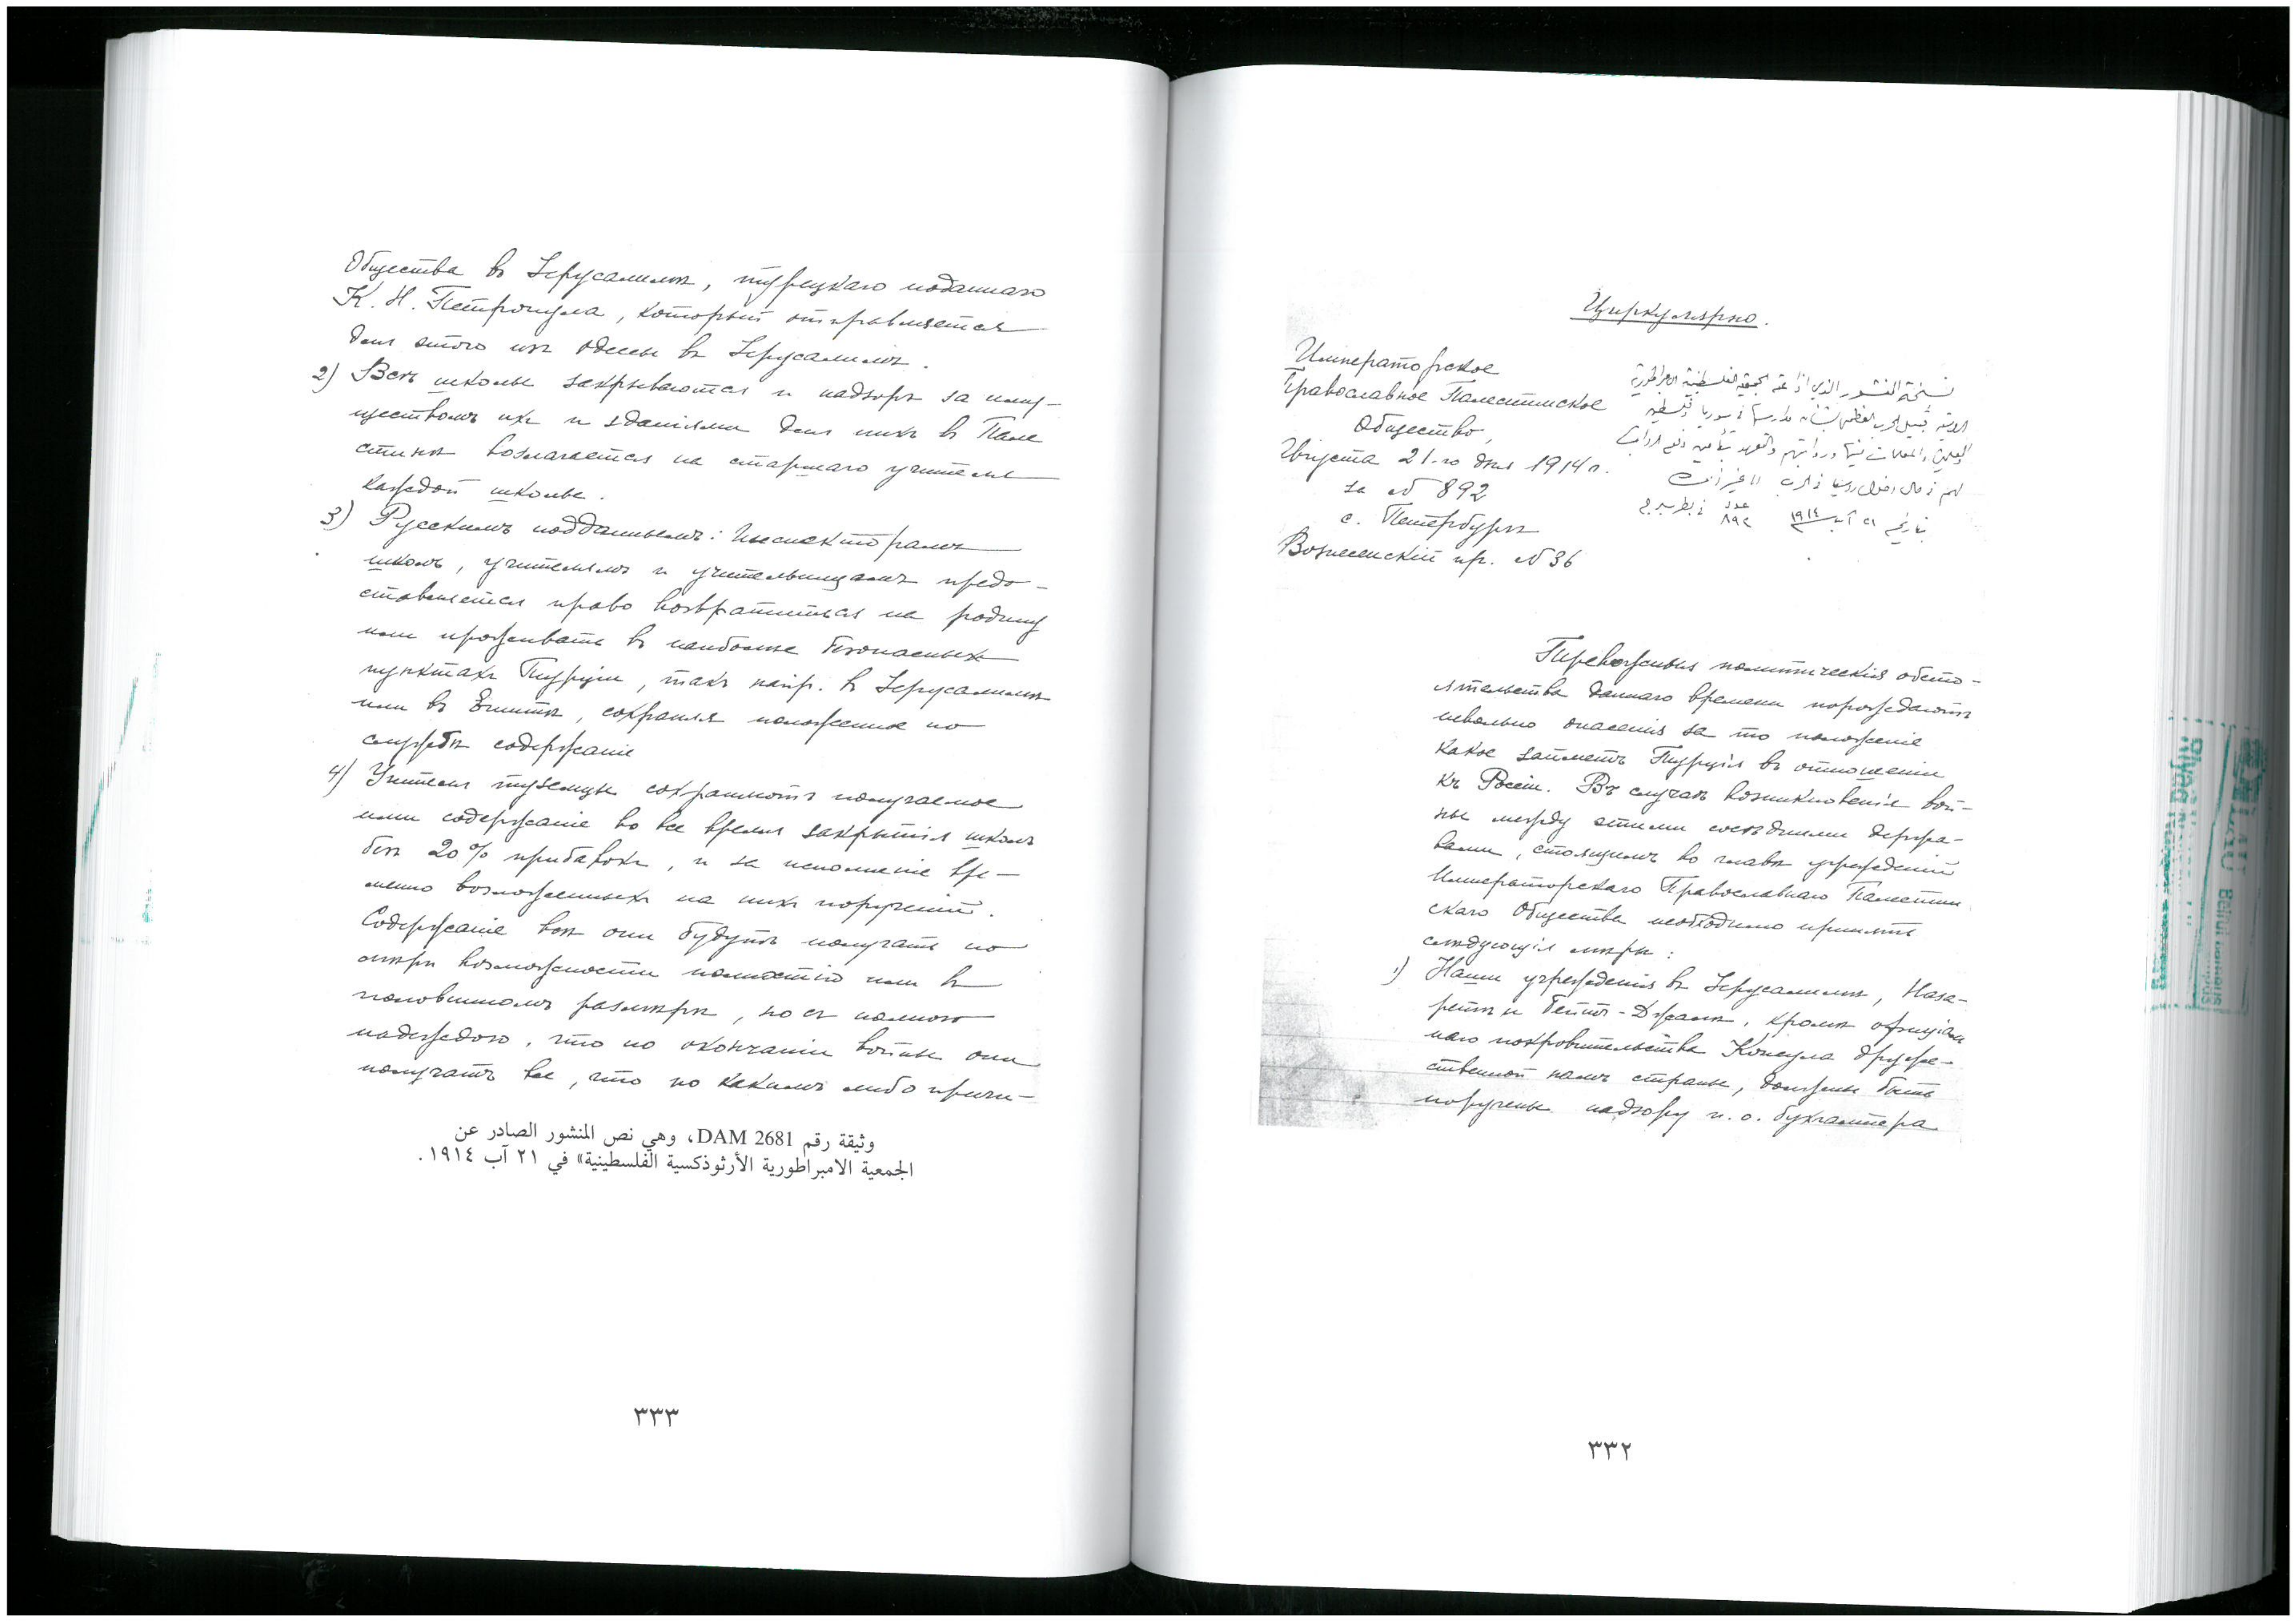 Циркулярно.
Императорское
Православное Палестинское
Общество,
Августа 21-го дня 1914 г.
за № 892
с. Петербургъ
Вознесенскій пр. № 36
نسخة المنشور الذي اذاعته الجمعية الفلسطينية الامبراطورية
الروسية قبيل الحرب العظمى بشأن مدارسها في سوريا وفلسطين
والمعلمين والمعلمات فيها ورواتبهم والتعهد بتأمين دفع الرواتب
لهم في حال دخول روسيا في الحرب
بتاريخ ٢١ آب ١٩١٤ عدد ٨٩٢ في بطرسبرج
Тревожныя политическія обсто-
ятельства даннаго времени порождаютъ
невольно опасенія за то положеніе
какое займетъ Турція въ отношеніи
къ Россіи. Въ случаѣ возникновенія вой-
ны между этими сосѣдними держа-
вами, стоящимъ во главѣ учрежденій
Императорскаго Православнаго Палестин
скаго Общества необходимо принять
слѣдующія мѣры:
1) Наши учрежденія въ Іерусалимѣ, Наза-
ретѣ и Бейтъ-Джалѣ, кромѣ офиціаль
наго покровительства Консула друже-
ственной намъ страны, должны быть
поручены надзору и. о. бухгалтера
٣٣٢
Общества въ Іерусалимѣ, турецкаго подданаго
К. Н. Петропула, который отправляется
для этого изъ Одессы въ Іерусалимъ.
2) Всѣ школы закрываются и надзоръ за иму-
ществомъ ихъ и зданіями для нихъ въ Пале
стинѣ возлагается на старшаго учителя
каждой школы.
3) Русскимъ подданнымъ: Инспекторамъ
школъ, учителямъ и учительницамъ предо-
ставляется право возвратиться на родину
или проживать въ наиболѣе безопасныхъ
пунктахъ Турціи, такъ напр. въ Іерусалимѣ
или въ Египтѣ, сохраняя положенное по
службѣ содержаніе
4) Учителя туземцы сохраняютъ получаемое
ими содержаніе во все время закрытія школъ
безъ 20% прибавки, и за исполненіе вре-
менно возложенныхъ на нихъ порученій.
Содержаніе всѣ они будутъ получать по
мѣрѣ возможности полностію или въ
половинномъ размѣрѣ, но съ полною
надеждою, что по окончаніи войны они
получатъ все, что по какимъ либо причи-
وثيقة رقم DAM 2681، وهي نص المنشور الصادر عن
الجمعية الامبراطورية الأرثوذكسية الفلسطينية» في ٢١ آب ١٩١٤.
٣٣٣